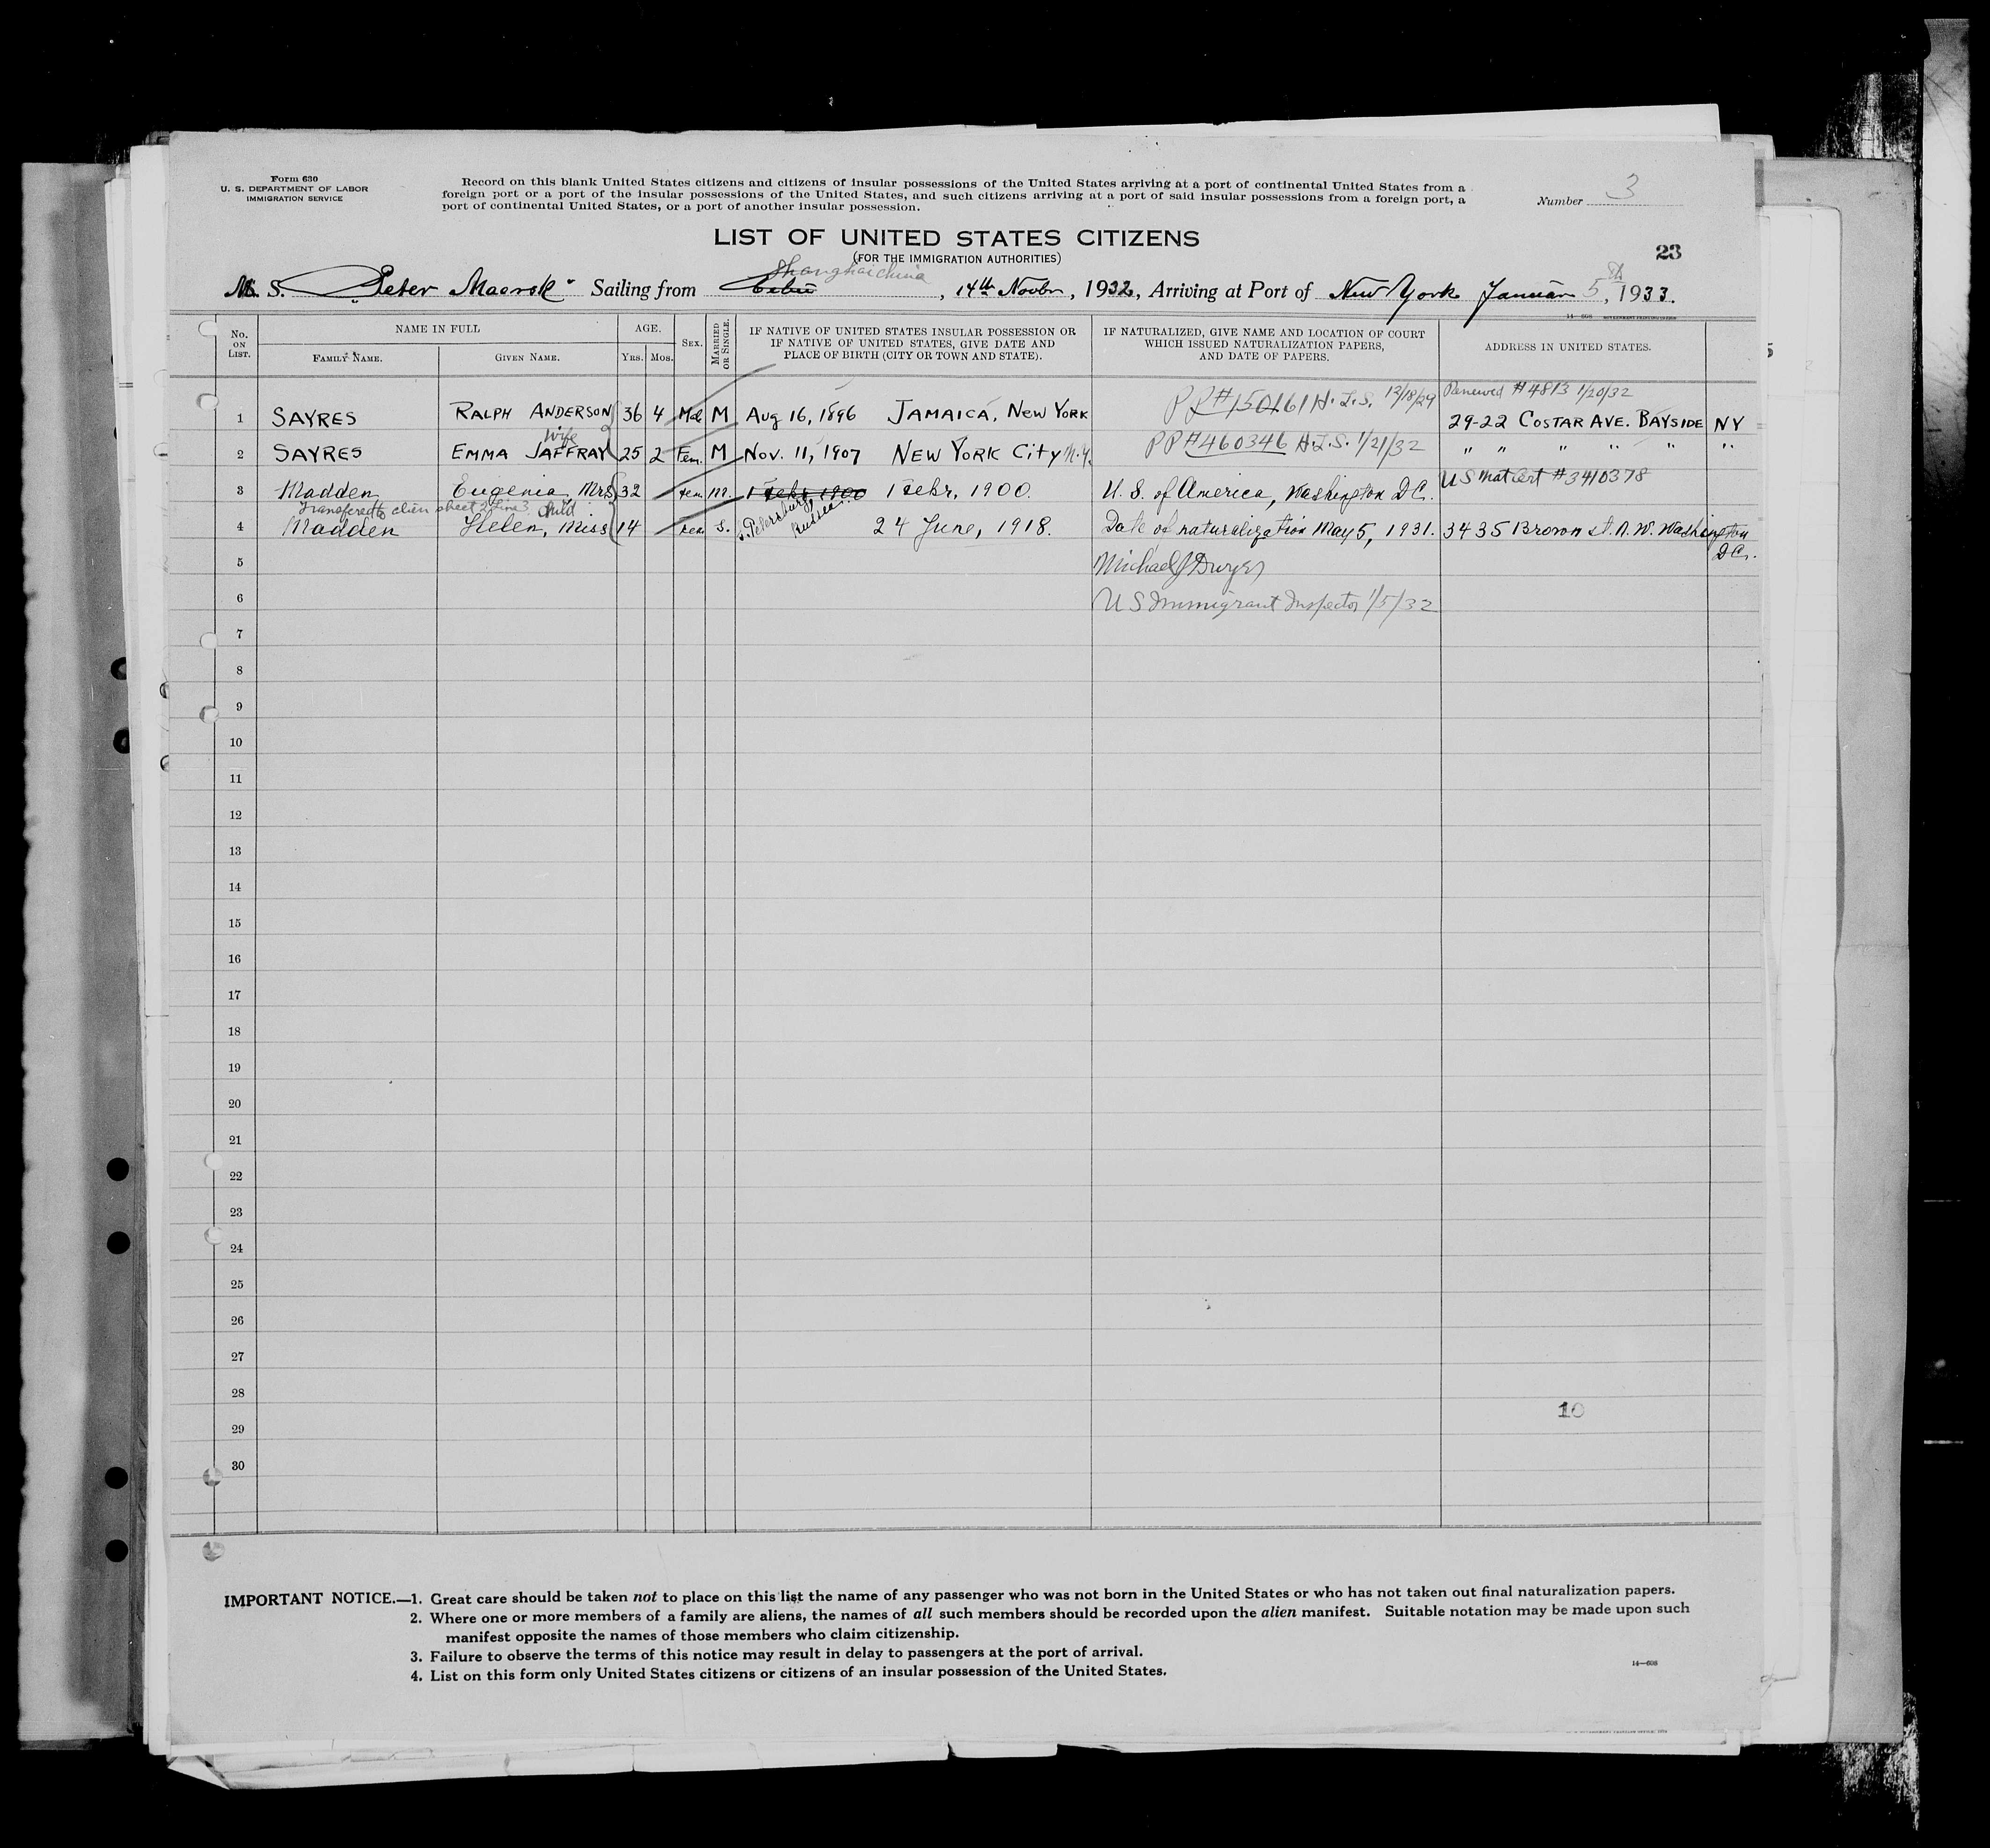 Form 630
U. S. DEPARTMENT OF LABOR
IMMIGRATION SERVICE
Record on this blank United States citizens and citizens of insular possessions of the United States arriving at a port of continental United States from a
foreign port or a port of the insular possessions of the United States, and such citizens arriving at a port of said insular possessions from a foreign port, a
port of continental United States, or a port of another insular possession.
Number 3
LIST OF UNITED STATES CITIZENS
(FOR THE IMMIGRATION AUTHORITIES)
23
Shanghai China
M. S. "Peter Maersk" Sailing from Cebu, 14th Novbr, 1932, Arriving at Port of New York Januar 5th, 1933.
14—608 GOVERNMENT PRINTING OFFICE
No. ON LIST. NAME IN FULL AGE. SEX. MARRIED OR SINGLE. IF NATIVE OF UNITED STATES INSULAR POSSESSION OR IF NATIVE OF UNITED STATES, GIVE DATE AND PLACE OF BIRTH (CITY OR TOWN AND STATE). IF NATURALIZED, GIVE NAME AND LOCATION OF COURT WHICH ISSUED NATURALIZATION PAPERS, AND DATE OF PAPERS. ADDRESS IN UNITED STATES.
FAMILY NAME. GIVEN NAME. YRS. MOS.
PP#150161 H.L.S. 12/18/29 Renewed #4813 1/20/32
1 SAYRES RALPH ANDERSON 36 4 Mal M Aug 16, 1896 JAMAICA, NEW YORK 29-22 COSTAR AVE. BAYSIDE NY
wife
2 SAYRES EMMA JAFFRAY 25 2 Fem. M Nov. 11, 1907 NEW YORK CITY N.Y. PP#460346 H.L.S. 1/21/32 " " " " " "
3 Madden Eugenia Mrs 32 fem m. 1 Febr. 1900 1 Febr, 1900. U. S. of America, Washington D.C. US Nat Cert #3410378
Transferred to alien sheet 2 Line 3 child
4 Madden Helen, Miss 14 fem S. St. Petersburg Russia. 24 June, 1918. Date of naturalization May 5, 1931. 3435 Brown St. N. W. Washington
D.C.
5 Michael J Dwyer
6 US Immigrant Inspector 1/5/32
7
8
9
10
11
12
13
14
15
16
17
18
19
20
21
22
23
24
25
26
27
28
10
29
30
IMPORTANT NOTICE.—1. Great care should be taken not to place on this list the name of any passenger who was not born in the United States or who has not taken out final naturalization papers.
2. Where one or more members of a family are aliens, the names of all such members should be recorded upon the alien manifest. Suitable notation may be made upon such
manifest opposite the names of those members who claim citizenship.
3. Failure to observe the terms of this notice may result in delay to passengers at the port of arrival.
4. List on this form only United States citizens or citizens of an insular possession of the United States.
14—608